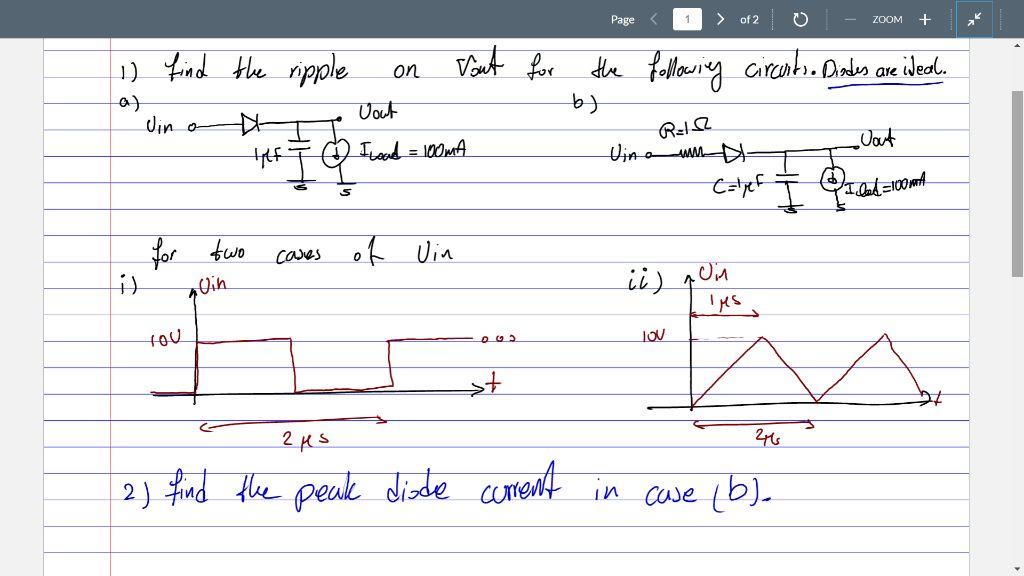 Page 1 of 2 ZOOM
1) Find the ripple on Vout for the following circuits. Diodes are ideal.
a) b)
Vin Vout 1μF ILoad = 100mA
R=1Ω Vin Vout C=1μF ILoad=100mA
for two cases of Vin
i) Vin 10V t 2μs
ii) Vin 1μs 10V t 2μs
2) find the peak diode current in case (b).